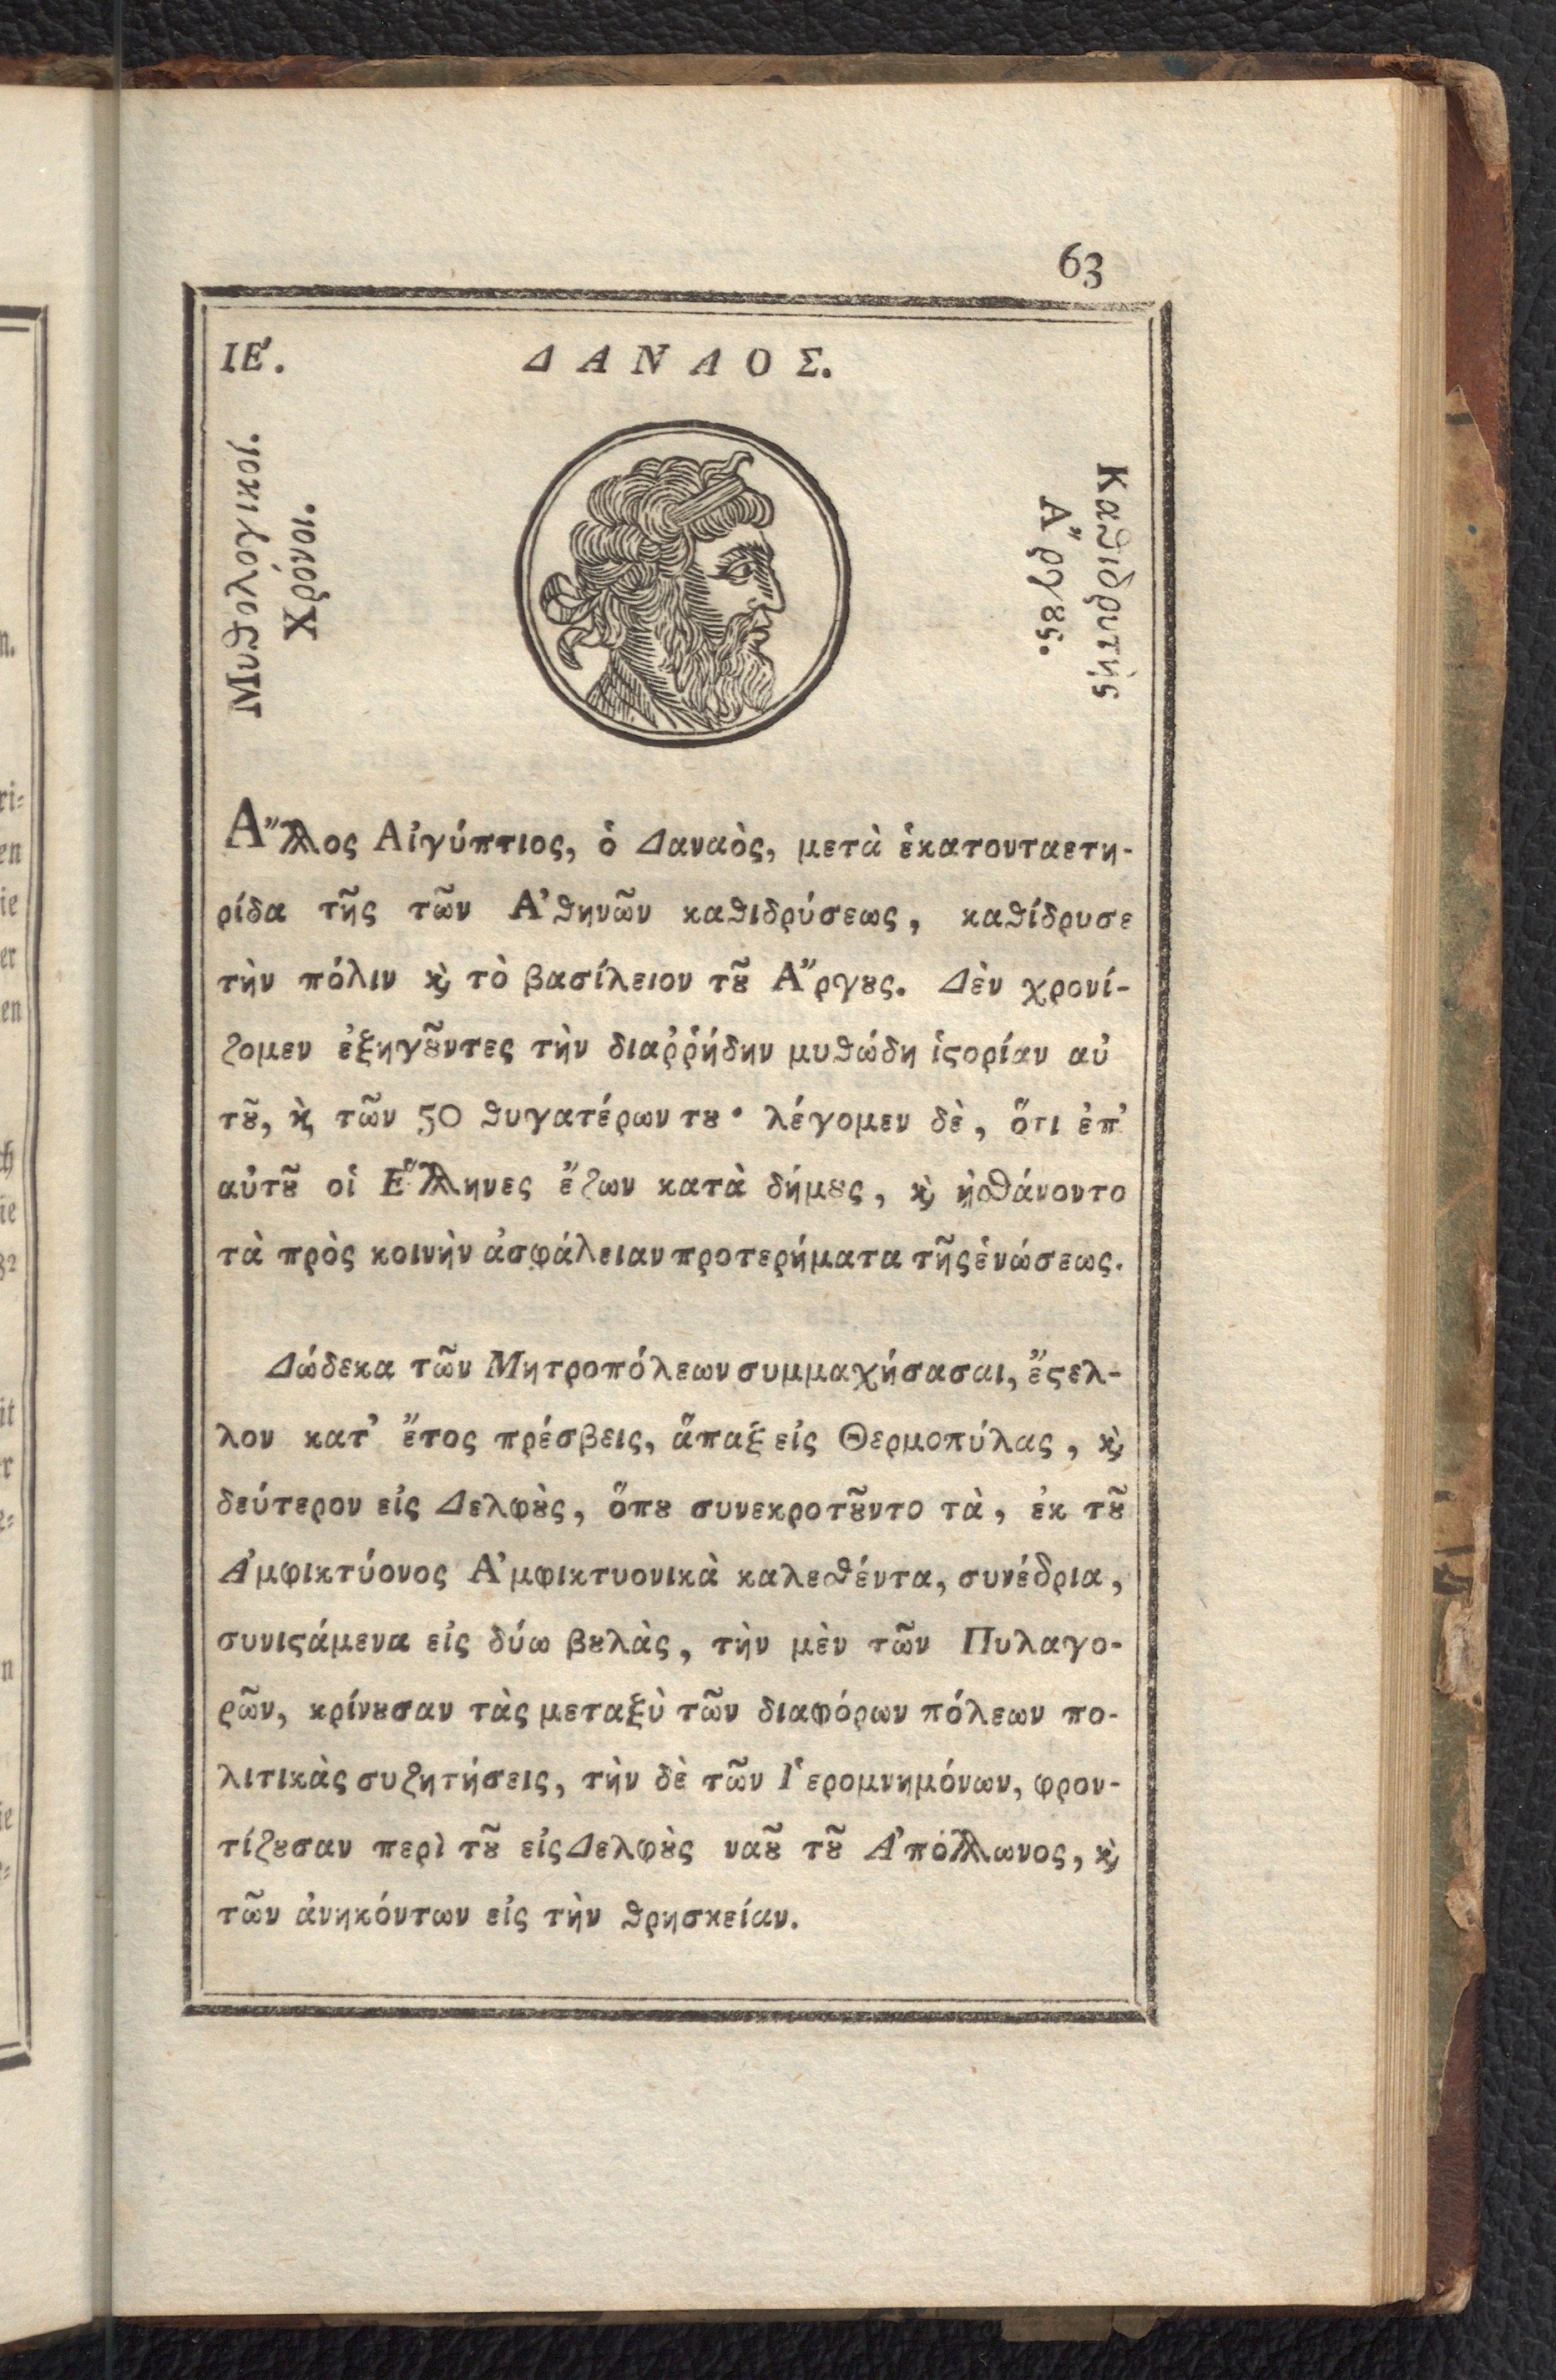 63
ΙΕ΄. ΔΑΝΑΟΣ.
Μυθολογικοί.
Χρόνοι.
Καθιδρυτὴς
Ἄργȣς.
Ἄλλος Αἰγύπτιος, ὁ Δαναὸς, μετὰ ἑκατονταετη-
ρίδα τῆς τῶν Ἀθηνῶν καθιδρύσεως, καθίδρυσε
τὴν πόλιν ϗ̀ τὸ βασίλειον τȣ͂ Ἄργȣς. Δὲν χρονί-
ζομεν ἐξηγȣ͂ντες τὴν διαῤῥήδην μυθώδη ἱϛορίαν αὐ
τȣ͂, ϗ̀ τῶν 50 θυγατέρων τȣ· λέγομεν δὲ, ὅτι ἐπ᾽
αὐτȣ͂ οἱ Ἕλληνες ἔζων κατὰ δήμȣς, ϗ̀ ἠσθάνοντο
τὰ πρὸς κοινὴν ἀσφάλειαν προτερήματα τῆς ἑνώσεως.
Δώδεκα τῶν Μητροπόλεων συμμαχήσασαι, ἔϛελ-
λον κατ᾽ ἔτος πρέσβεις, ἅπαξ εἰς Θερμοπύλας, ϗ̀
δεύτερον εἰς Δελφȣ̀ς, ὅπȣ συνεκροτȣ͂ντο τὰ, ἐκ τȣ͂
Ἀμφικτύονος Ἀμφικτυονικὰ καλεσθέντα, συνέδρια,
συνιϛάμενα εἰς δύω βȣλὰς, τὴν μὲν τῶν Πυλαγο-
ρῶν, κρίνȣσαν τὰς μεταξὺ τῶν διαφόρων πόλεων πο-
λιτικὰς συζητήσεις, τὴν δὲ τῶν Ἱερομνημόνων, φρον-
τίζȣσαν περὶ τȣ͂ εἰς Δελφȣ̀ς ναȣ͂ τȣ͂ Ἀπόλλωνος, ϗ̀
τῶν ἀνηκόντων εἰς τὴν θρησκείαν.